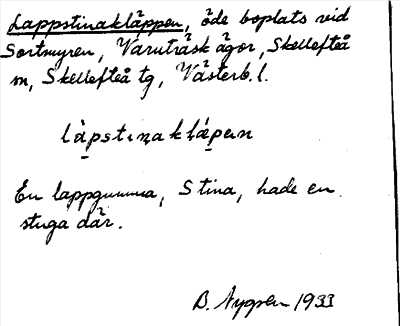 Lappstinakläppen, öde boplats vid
Sortmyren, Varuträsk ägor, Skellefteå
m, Skellefteå tg, Västerb. l.
làpstinaklǽpen
En lappgumma, Stina, hade en
stuga där.
B. Nygren 1933